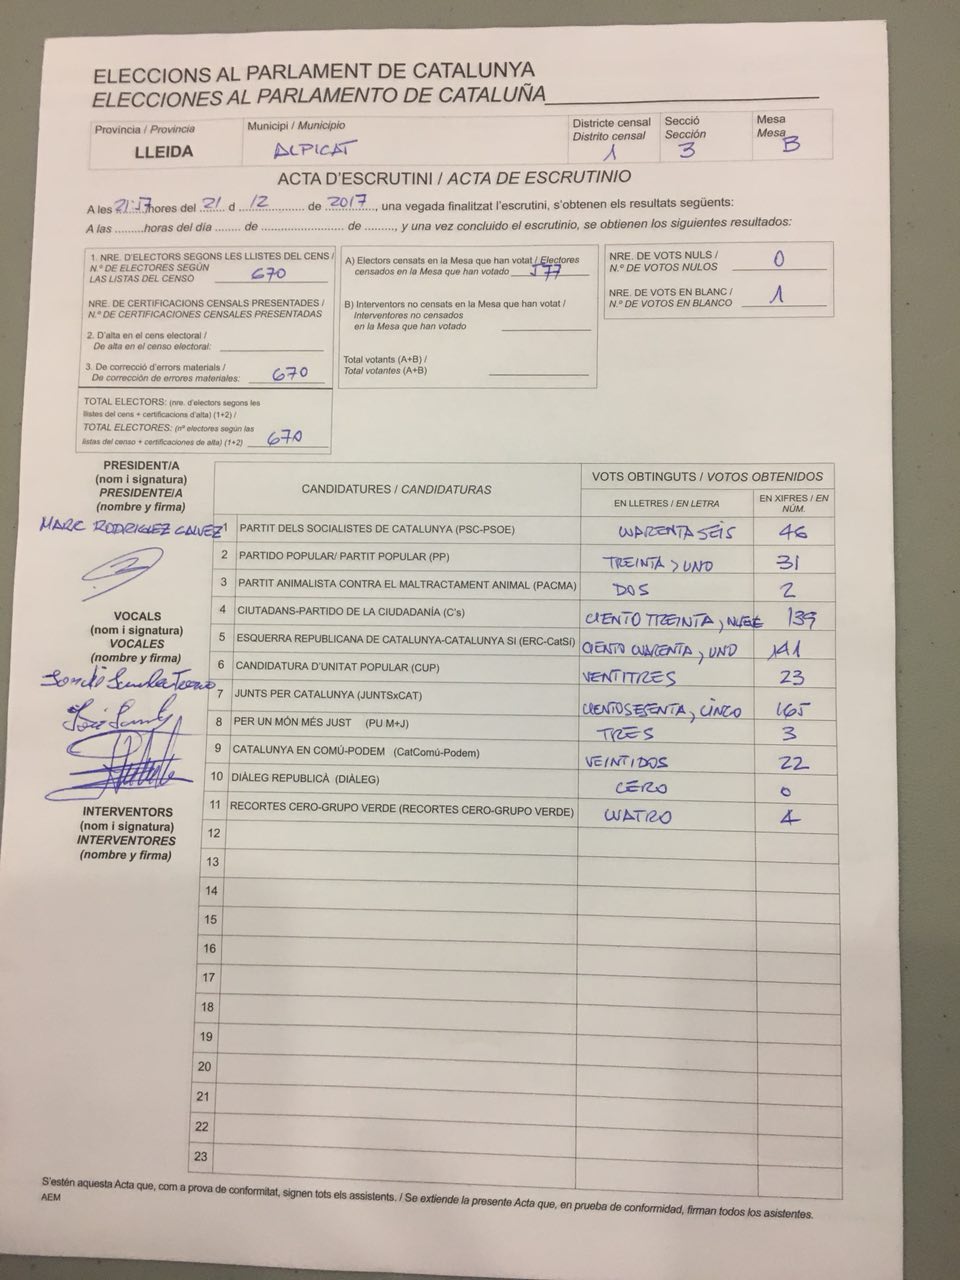 ELECCIONS AL PARLAMENT DE CATALUNYA
ELECCIONES AL PARLAMENTO DE CATALUÑA
Província / Provincia
LLEIDA
Municipi / Municipio
ALPICAT
Districte censal
Distrito censal
1
Secció
Sección
3
Mesa
Mesa
B
ACTA D'ESCRUTINI / ACTA DE ESCRUTINIO
A les 21:17 hores del 21 d 12 de 2017, una vegada finalitzat l'escrutini, s'obtenen els resultats següents:
A las .........horas del día ........ de .......................... de ........., y una vez concluido el escrutinio, se obtienen los siguientes resultados:
1. NRE. D'ELECTORS SEGONS LES LLISTES DEL CENS /
N.º DE ELECTORES SEGÚN
LAS LISTAS DEL CENSO 670
NRE. DE CERTIFICACIONS CENSALS PRESENTADES /
N.º DE CERTIFICACIONES CENSALES PRESENTADAS
2. D'alta en el cens electoral /
De alta en el censo electoral:
3. De correcció d'errors materials /
De corrección de errores materiales: 670
TOTAL ELECTORS: (nre. d'electors segons les
llistes del cens + certificacions d'alta) (1+2) /
TOTAL ELECTORES: (nº electores según las
listas del censo + certificaciones de alta) (1+2) 670
A) Electors censats en la Mesa que han votat / Electores
censados en la Mesa que han votado 577
B) Interventors no censats en la Mesa que han votat /
Interventores no censados
en la Mesa que han votado
Total votants (A+B) /
Total votantes (A+B)
NRE. DE VOTS NULS /
N.º DE VOTOS NULOS 0
NRE. DE VOTS EN BLANC /
N.º DE VOTOS EN BLANCO 1
PRESIDENT/A
(nom i signatura)
PRESIDENTE/A
(nombre y firma)
MARC RODRIGUEZ GALVEZ
VOCALS
(nom i signatura)
VOCALES
(nombre y firma)
INTERVENTORS
(nom i signatura)
INTERVENTORES
(nombre y firma)
CANDIDATURES / CANDIDATURAS
VOTS OBTINGUTS / VOTOS OBTENIDOS
EN LLETRES / EN LETRA
EN XIFRES / EN NÚM.
1 PARTIT DELS SOCIALISTES DE CATALUNYA (PSC-PSOE) CUARENTA SEIS 46
2 PARTIDO POPULAR/ PARTIT POPULAR (PP) TREINTA Y UNO 31
3 PARTIT ANIMALISTA CONTRA EL MALTRACTAMENT ANIMAL (PACMA) DOS 2
4 CIUTADANS-PARTIDO DE LA CIUDADANÍA (C's) CIENTO TREINTA Y NUEVE 139
5 ESQUERRA REPUBLICANA DE CATALUNYA-CATALUNYA SÍ (ERC-CatSí) CIENTO CUARENTA Y UNO 141
6 CANDIDATURA D'UNITAT POPULAR (CUP) VENTITRES 23
7 JUNTS PER CATALUNYA (JUNTSxCAT) CIENTO SESENTA Y CINCO 165
8 PER UN MÓN MÉS JUST (PU M+J) TRES 3
9 CATALUNYA EN COMÚ-PODEM (CatComú-Podem) VEINTIDOS 22
10 DIÀLEG REPUBLICÀ (DIÀLEG) CERO 0
11 RECORTES CERO-GRUPO VERDE (RECORTES CERO-GRUPO VERDE) CUATRO 4
12
13
14
15
16
17
18
19
20
21
22
23
S'estén aquesta Acta que, com a prova de conformitat, signen tots els assistents. / Se extiende la presente Acta que, en prueba de conformidad, firman todos los asistentes.
AEM